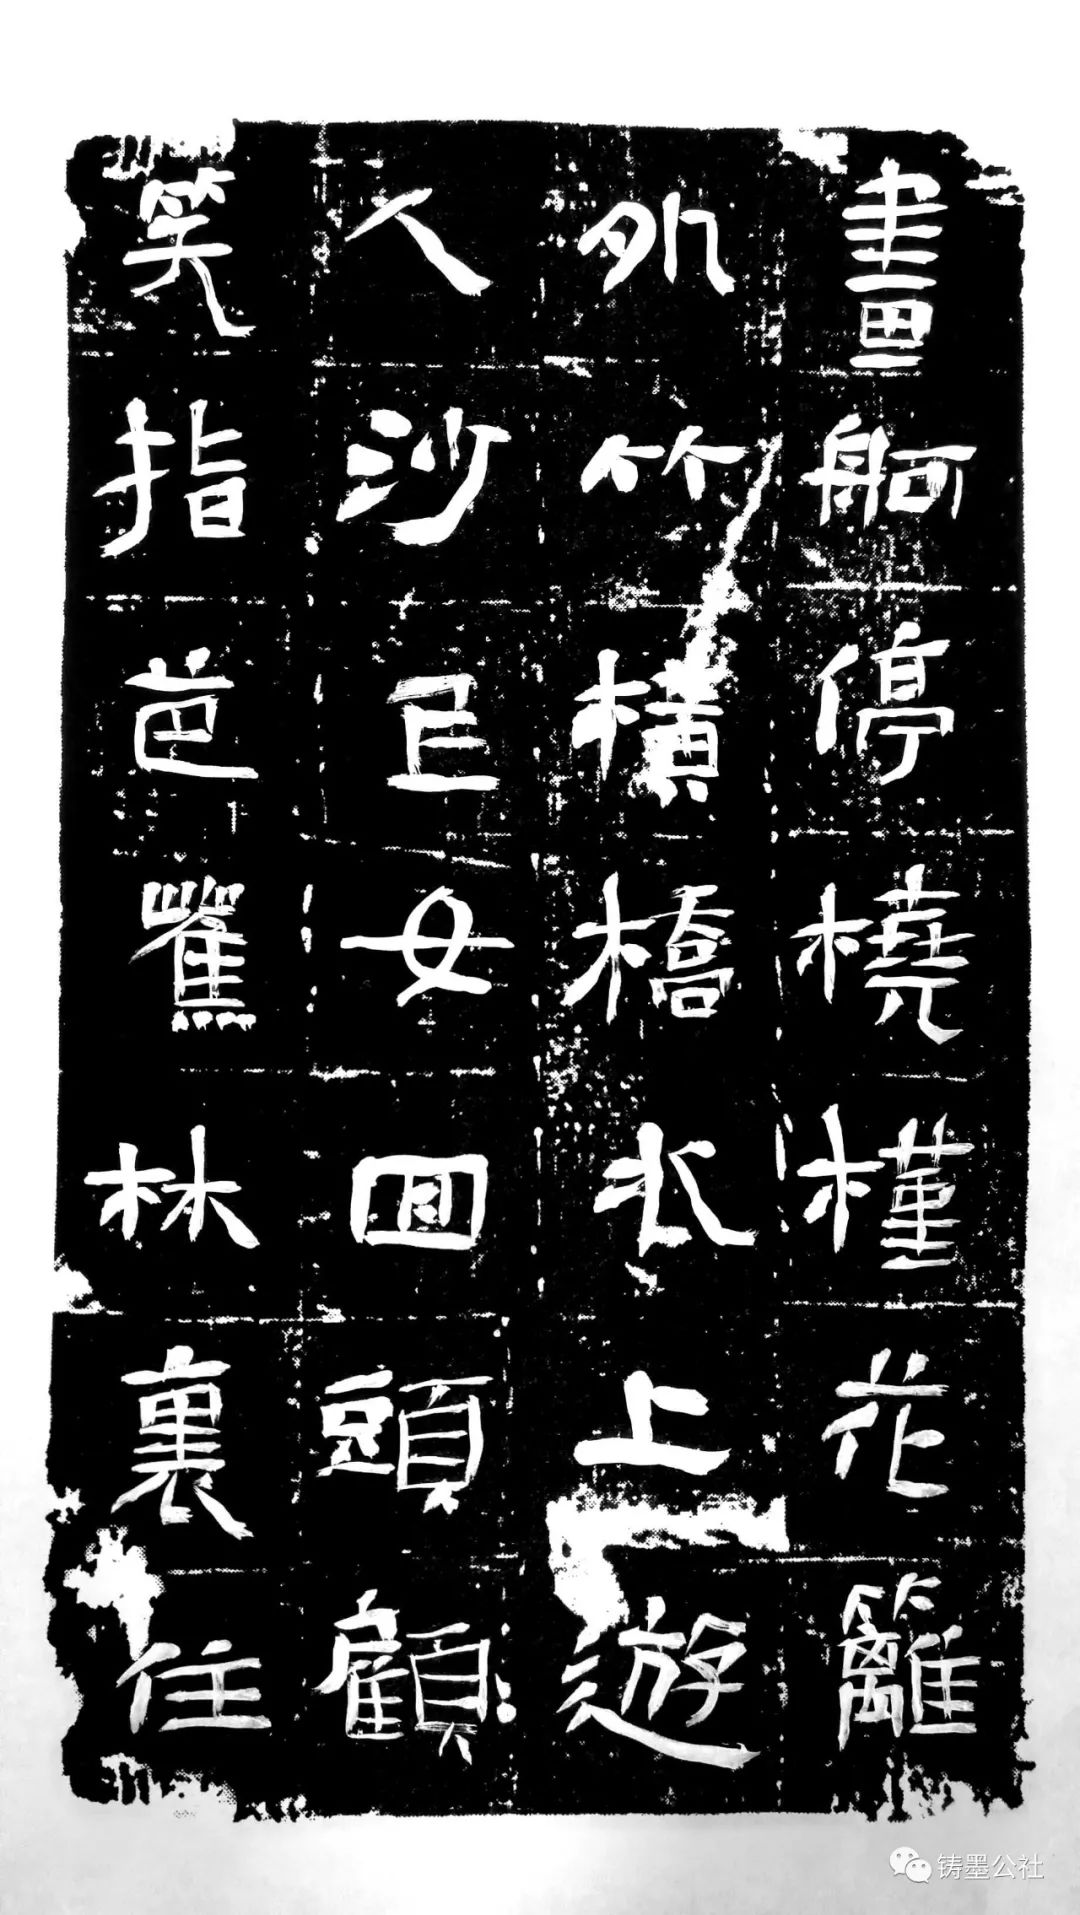 畫舸停橈槿花籬
外竹橫橋水上遊
人沙女回頭顧
笑指芭蕉林裏住
铸墨公社